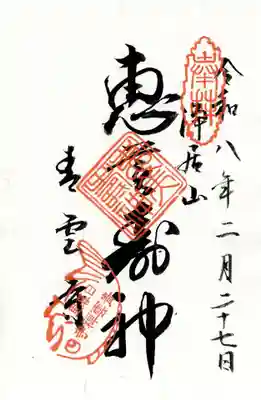 令和八年二月二十七日
奉拝
浄居山
恵比寿神
青雲寺